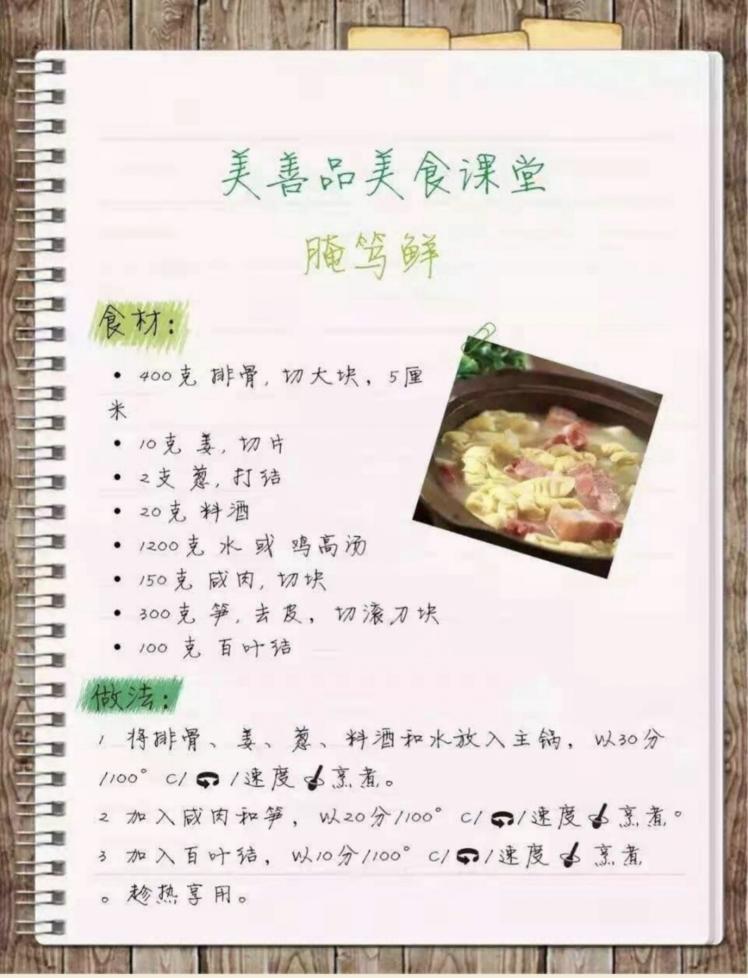 美善品美食课堂
腌笃鲜
食材：
• 400克 排骨，切大块，5厘
米
• 10克 姜，切片
• 2支 葱，打结
• 20克 料酒
• 1200克 水 或 鸡高汤
• 150克 咸肉，切块
• 300克 笋，去皮，切滚刀块
• 100 克 百叶结
做法：
1 将排骨、姜、葱、料酒和水放入主锅，以30分
/100° C/ /速度 烹煮。
2 加入咸肉和笋，以20分/100° C/ /速度 烹煮。
3 加入百叶结，以10分/100° C/ /速度 烹煮
。趁热享用。